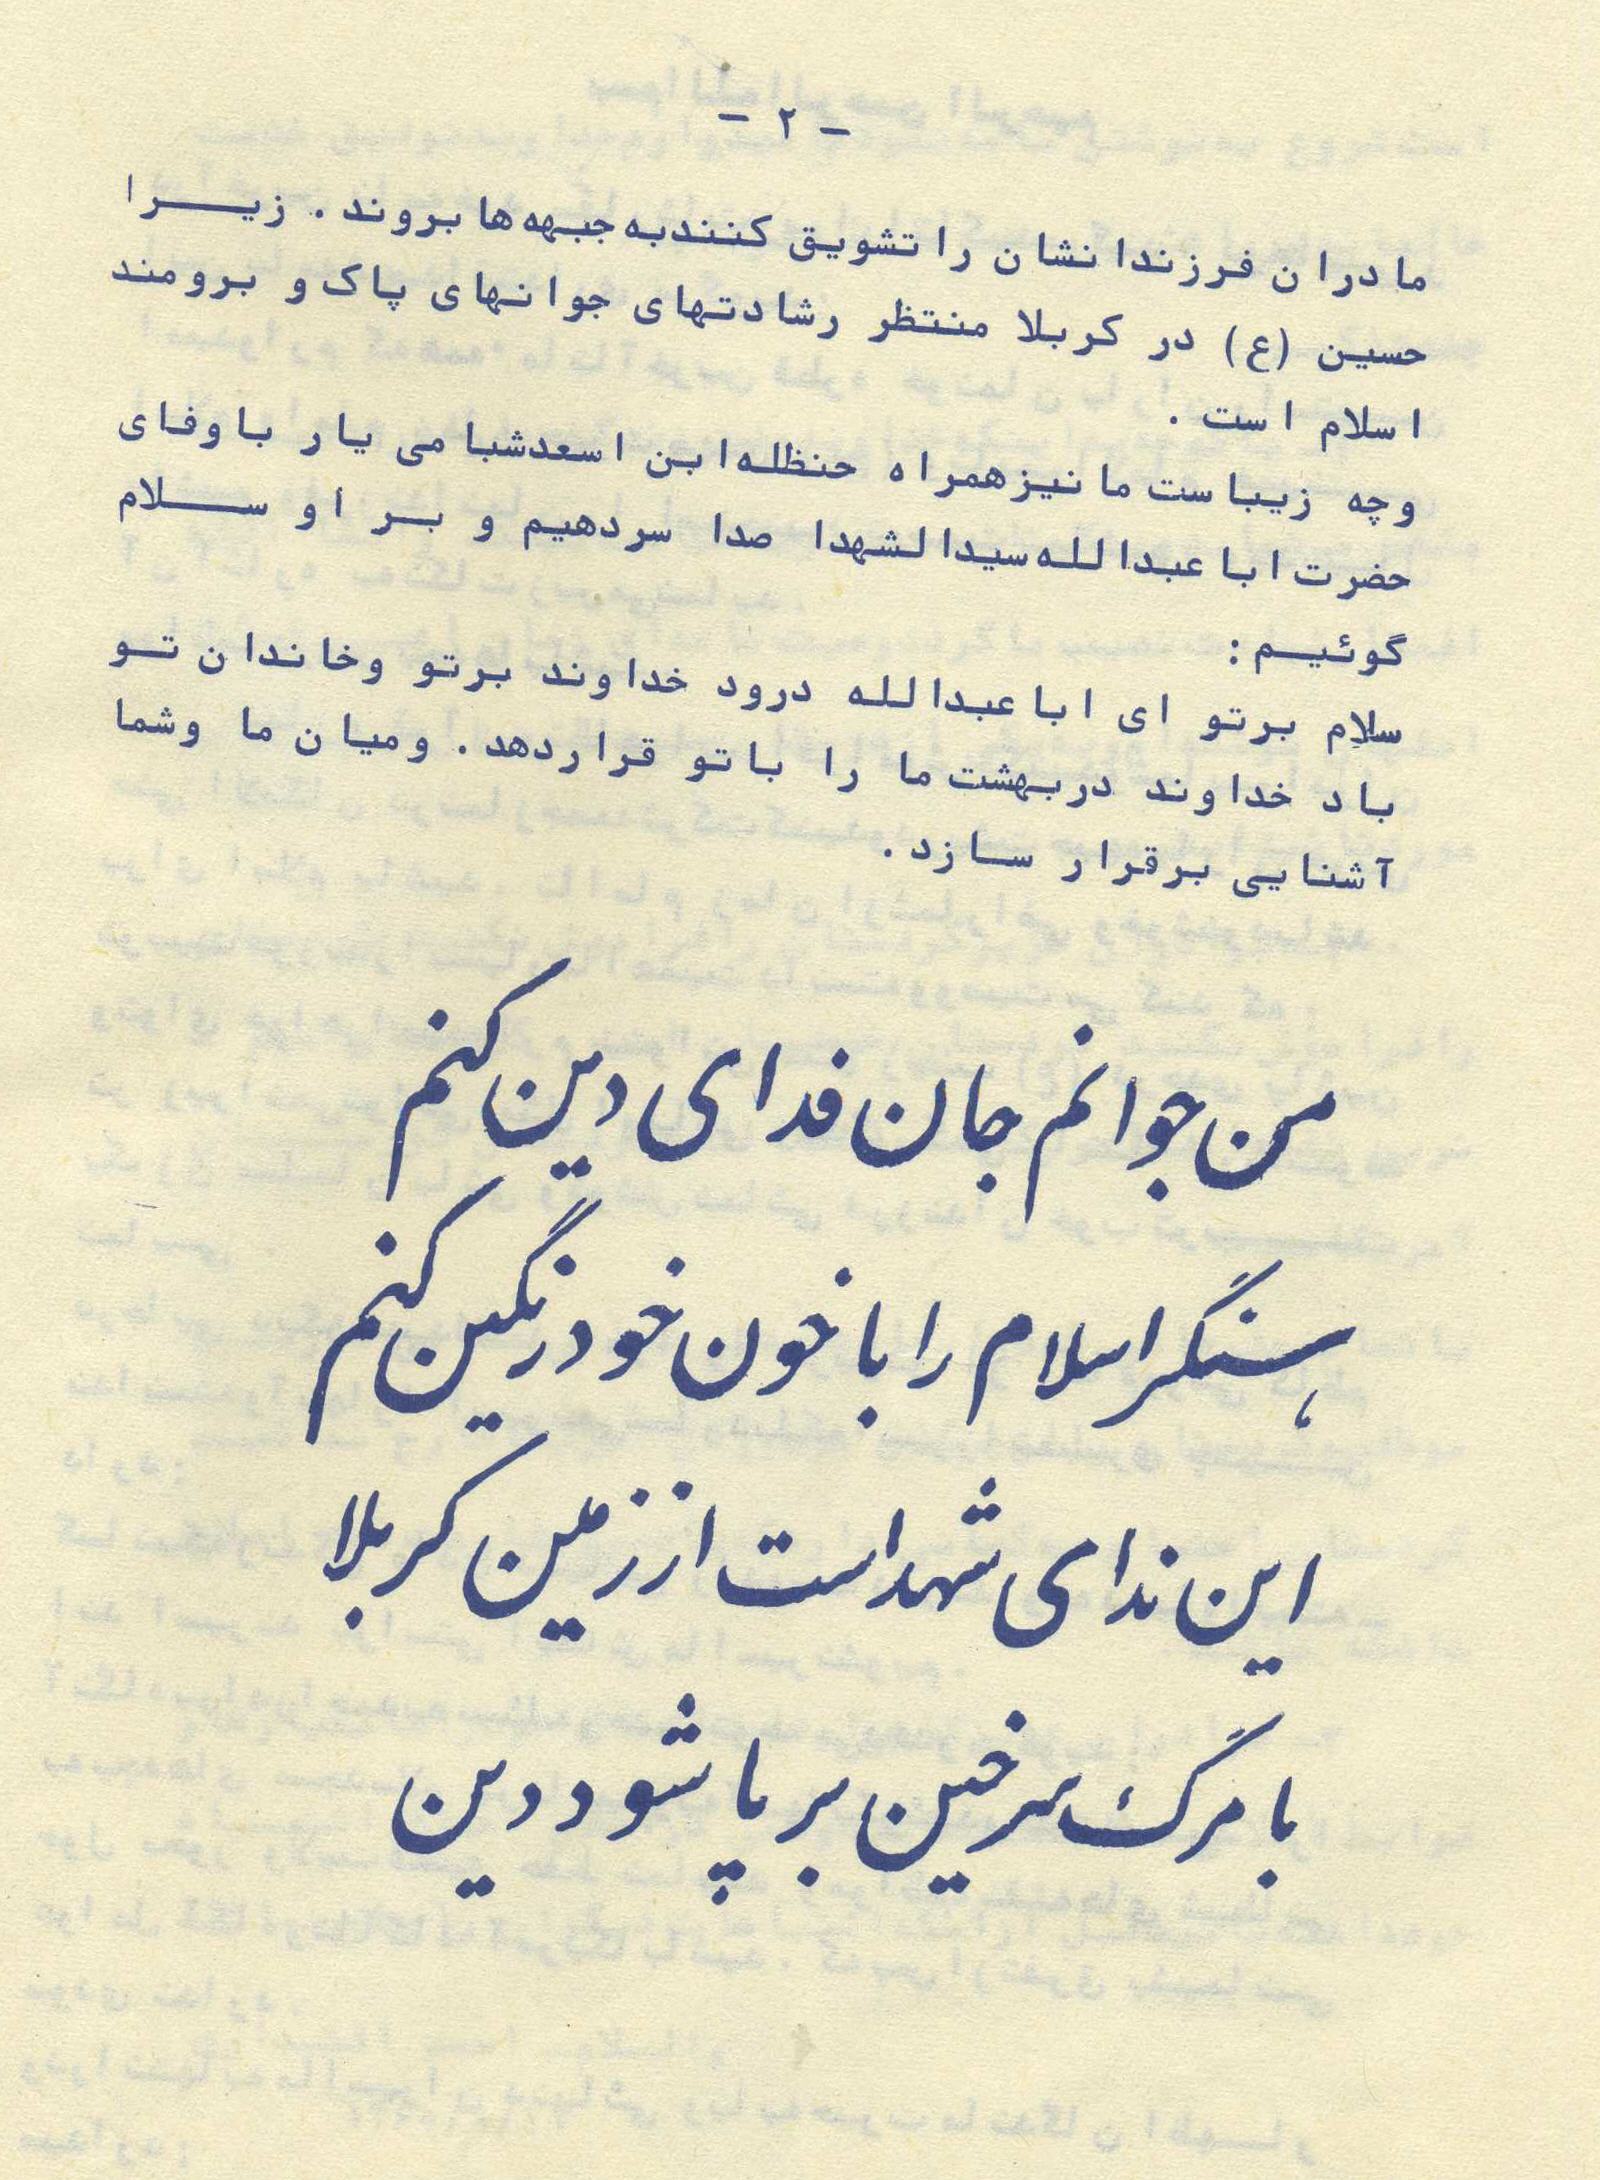 - ۲ -
مادران فرزندانشان را تشویق کنند به جبهه‌ها بروند. زیرا
حسین (ع) در کربلا منتظر رشادتهای جوانهای پاک و برومند
اسلام است.
وچه زیباست ما نیز همراه حنظله ابن اسعد شبامی یار باوفای
حضرت ابا عبدالله سیدالشهدا صدا سردهیم و بر او سلام
گوئیم:
سلام برتو ای ابا عبدالله درود خداوند برتو وخاندان تو
باد خداوند دربهشت ما را باتو قرار دهد. ومیان ما وشما
آشنایی برقرار سازد.
من جوانم جان فدای دین کنم
سنگر اسلام را با خون خود رنگین کنم
این ندای شهداست از زمین کربلا
با مرگ سرخین بر پا شود دین